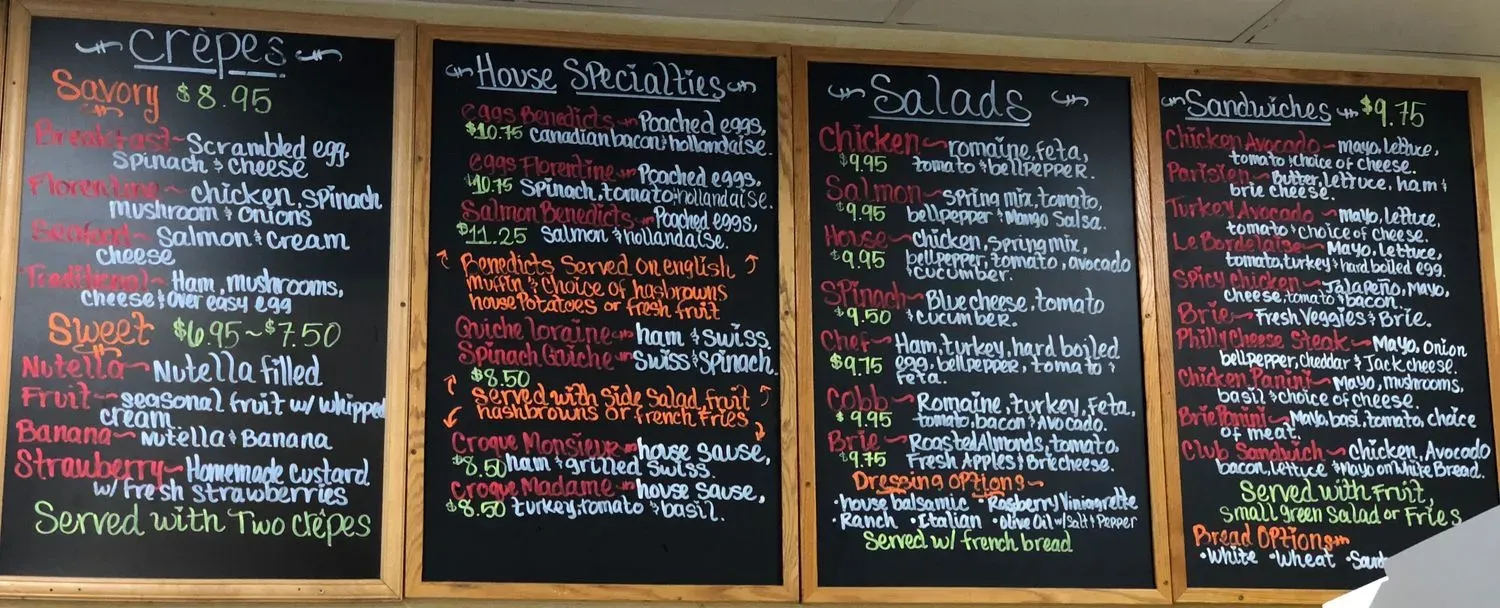 Crêpes
Savory $8.95
Breakfast~Scrambled egg,
spinach & cheese
Florentine~chicken, spinach
mushroom & onions
Seafood~Salmon & Cream
cheese
Traditional~Ham, mushrooms,
cheese & over easy egg
Sweet $6.95~$7.50
Nutella~Nutella filled
Fruit~seasonal fruit w/ whipped
cream
Banana~Nutella & Banana
Strawberry~Homemade Custard
w/ fresh strawberries
Served with Two crêpes
House Specialties
eggs Benedicts~Poached eggs,
$10.75 canadian bacon & hollandaise.
eggs Florentine~Poached eggs,
$10.75 Spinach, tomato & hollandaise.
Salmon Benedicts~Poached eggs,
$11.25 Salmon & hollandaise.
Benedicts Served on english
muffin & choice of hasbrowns
house potatoes or fresh fruit
Quiche loraine~ham & swiss.
Spinach Quiche~Swiss & Spinach.
$8.50
Served with Side Salad, fruit
hashbrowns or french fries
Croque Monsieur~house sause,
$8.50 ham & grilled swiss.
Croque Madame~house sause,
$8.50 turkey, tomato & basil.
Salads
Chicken~romaine, feta,
$9.95 tomato & bellpepper.
Salmon~spring mix, tomato,
$9.95 bellpepper & Mango Salsa.
House~chicken, spring mix,
$9.95 bellpepper, tomato, avocado
& cucumber.
Spinach~Blue cheese, tomato
$9.50 & cucumber.
Chef~Ham, turkey, hard boiled
$9.75 egg, bellpepper, tomato &
feta.
Cobb~Romaine, turkey, Feta,
$9.95 tomato, bacon & Avocado.
Brie~Roasted Almonds, tomato,
$9.75 Fresh Apples & Brie cheese.
Dressing Options~
•house balsamic •Raspberry Viniagrette
•Ranch •Italian •Olive Oil w/ Salt & Pepper
Served w/ french bread
Sandwiches~$9.75
Chicken Avocado~mayo, lettuce,
tomato & choice of cheese.
Parisien~Butter, Lettuce, ham &
brie cheese.
Turkey Avocado~mayo, lettuce,
tomato & choice of cheese.
Le Bordelaise~Mayo, Lettuce,
tomato, turkey & hard boiled egg.
Spicy chicken~Jalapeño, Mayo,
cheese, tomato & bacon.
Brie~Fresh Veggies & Brie.
Philly Cheese Steak~Mayo, Onion
bellpepper, cheddar & Jack cheese.
Chicken Panini~Mayo, mushrooms,
basil & choice of cheese.
Brie Panini~Mayo, basi, tomato, choice
of meat.
Club Sandwich~chicken, Avocado
bacon, lettuce & Mayo on White Bread.
Served with Fruit,
small green Salad or Fries
Bread Options~
•White •Wheat